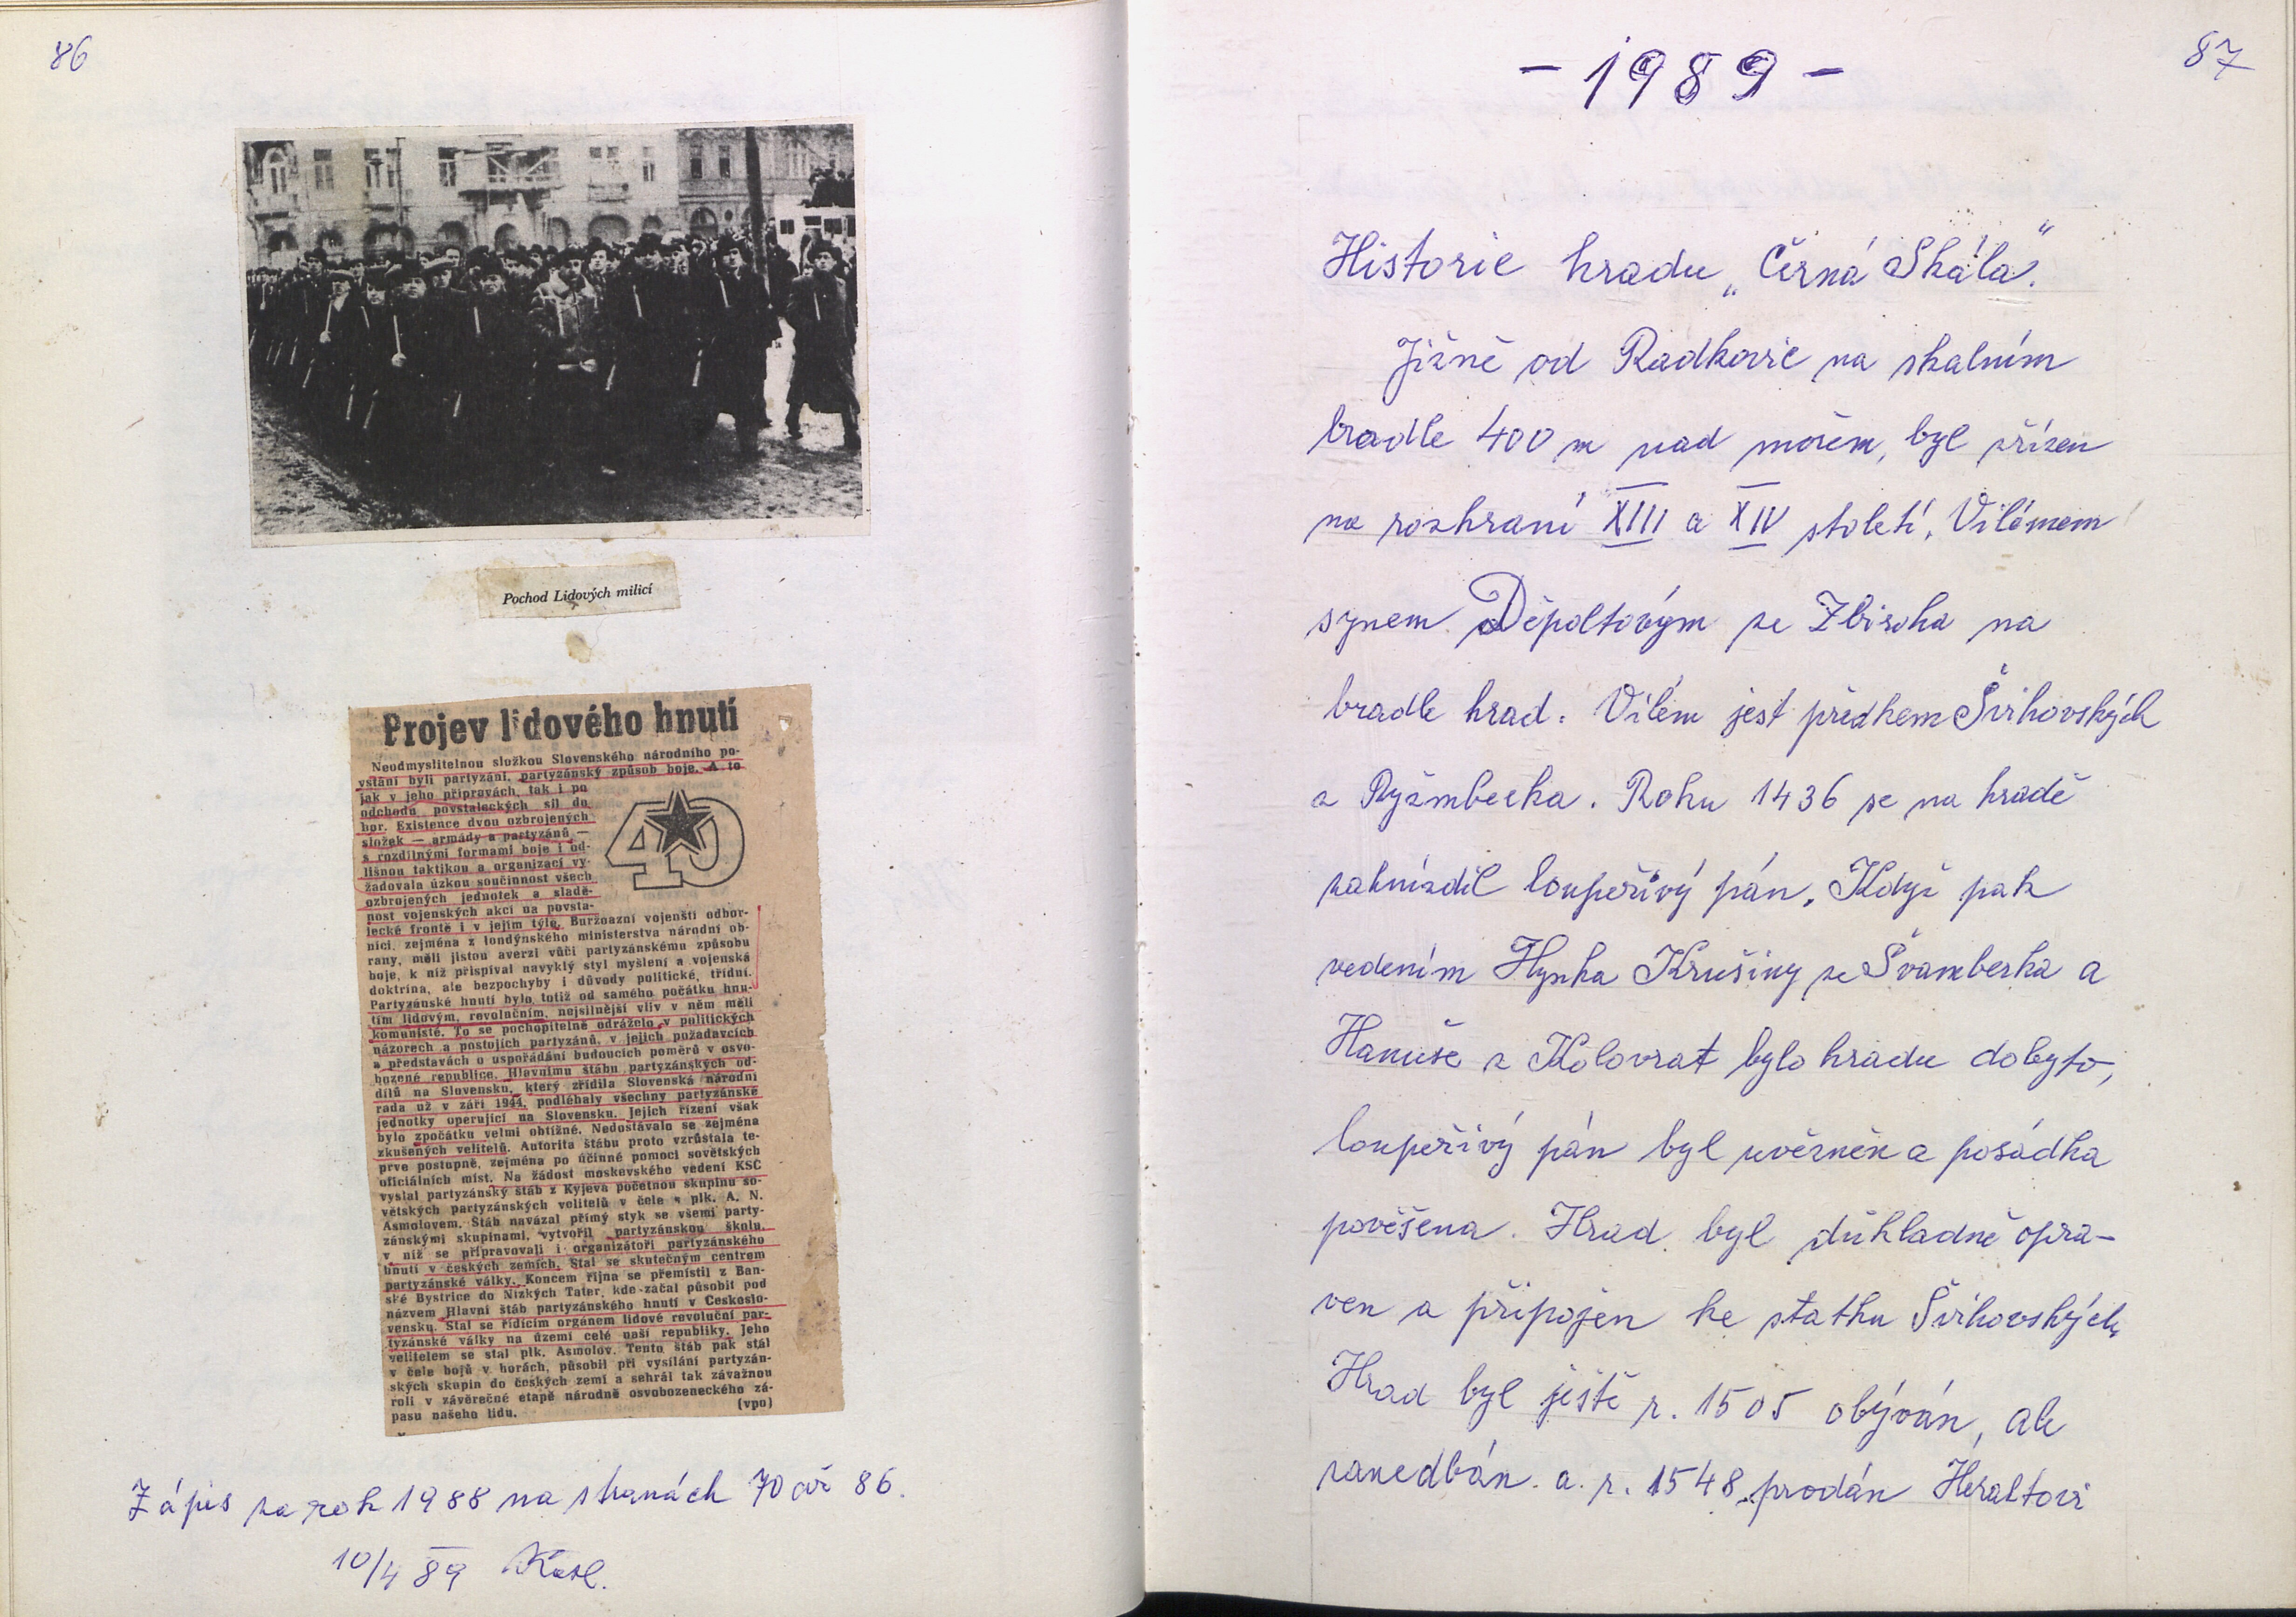 86
Pochod Lidových milicí
Projev lidového hnutí
Neodmyslitelnou složkou Slovenského národního po-
vstání byli partyzáni, partyzánský způsob boje. A to
jak v jeho přípravách, tak i po
odchodu povstaleckých sil do
hor. Existence dvou ozbrojených
složek — armády a partyzánů —
s rozdílnými formami boje i od-
lišnou taktikou a organizací vy-
žadovala úzkou součinnost všech
ozbrojených jednotek a sladě-
nost vojenských akcí na povsta-
lecké frontě i v jejím týle. Buržoazní vojenští odbor-
níci, zejména z londýnského ministerstva národní ob-
rany, měli jistou averzi vůči partyzánskému způsobu
boje, k níž přispíval navyklý styl myšlení a vojenská
doktrína, ale bezpochyby i důvody politické, třídní.
Partyzánské hnutí bylo totiž od samého počátku hnu-
tím lidovým, revolučním, nejsilnější vliv v něm měli
komunisté. To se pochopitelně odráželo v politických
názorech a postojích partyzánů, v jejich požadavcích
a představách o uspořádání budoucích poměrů v osvo-
bozené republice. Hlavnímu štábu partyzánských od-
dílů na Slovensku, který zřídila Slovenská národní
rada už v září 1944, podléhaly všechny partyzánské
jednotky operující na Slovensku. Jejich řízení však
bylo zpočátku velmi obtížné. Nedostávalo se zejména
zkušených velitelů. Autorita štábu proto vzrůstala te-
prve postupně, zejména po účinné pomoci sovětských
oficiálních míst. Na žádost moskevského vedení KSČ
vyslal partyzánský štáb z Kyjeva početnou skupinu so-
větských partyzánských velitelů v čele s plk. A. N.
Asmolovem. Štáb navázal přímý styk se všemi party-
zánskými skupinami, vytvořil partyzánskou školu,
v níž se připravovali i organizátoři partyzánského
hnutí v českých zemích. Stal se skutečným centrem
partyzánské války. Koncem října se přemístil z Ban-
ské Bystrice do Nízkých Tater, kde začal působit pod
názvem Hlavní štáb partyzánského hnutí v Českoslo-
vensku. Stal se řídícím orgánem lidové revoluční par-
tyzánské války na území celé naší republiky. Jeho
velitelem se stal plk. Asmolov. Tento štáb pak stál
v čele bojů v horách, působil při vysílání partyzán-
ských skupin do českých zemí a sehrál tak závažnou
roli v závěrečné etapě národně osvobozeneckého zá-
pasu našeho lidu. (vpo)
40
Zápis za rok 1988 na stranách 70 až 86.
10/4 89
87
- 1989 -
Historie hradu „Černá Skála".
Jižně od Radkovic na skalním
bradle 400 m nad mořem, byl zřízen
na rozhraní XIII a XIV století, Vilémem
synem Děpoltovým ze Zbiroha na
bradle hrad. Vilém jest předkem Švihovských
z Ryžmberka. Roku 1436 se na hradě
zahnízdil loupeživý pán. Když pak
vedením Hynka Krušiny ze Švamberka a
Hanuše z Kolovrat bylo hradu dobyto,
loupeživý pán byl uvězněn a posádka
pověšena. Hrad byl důkladně opra-
ven a připojen ke statku Švihovských.
Hrad byl ještě r. 1505 obýván, ale
zanedbán a r. 1548 prodán Héraltovi